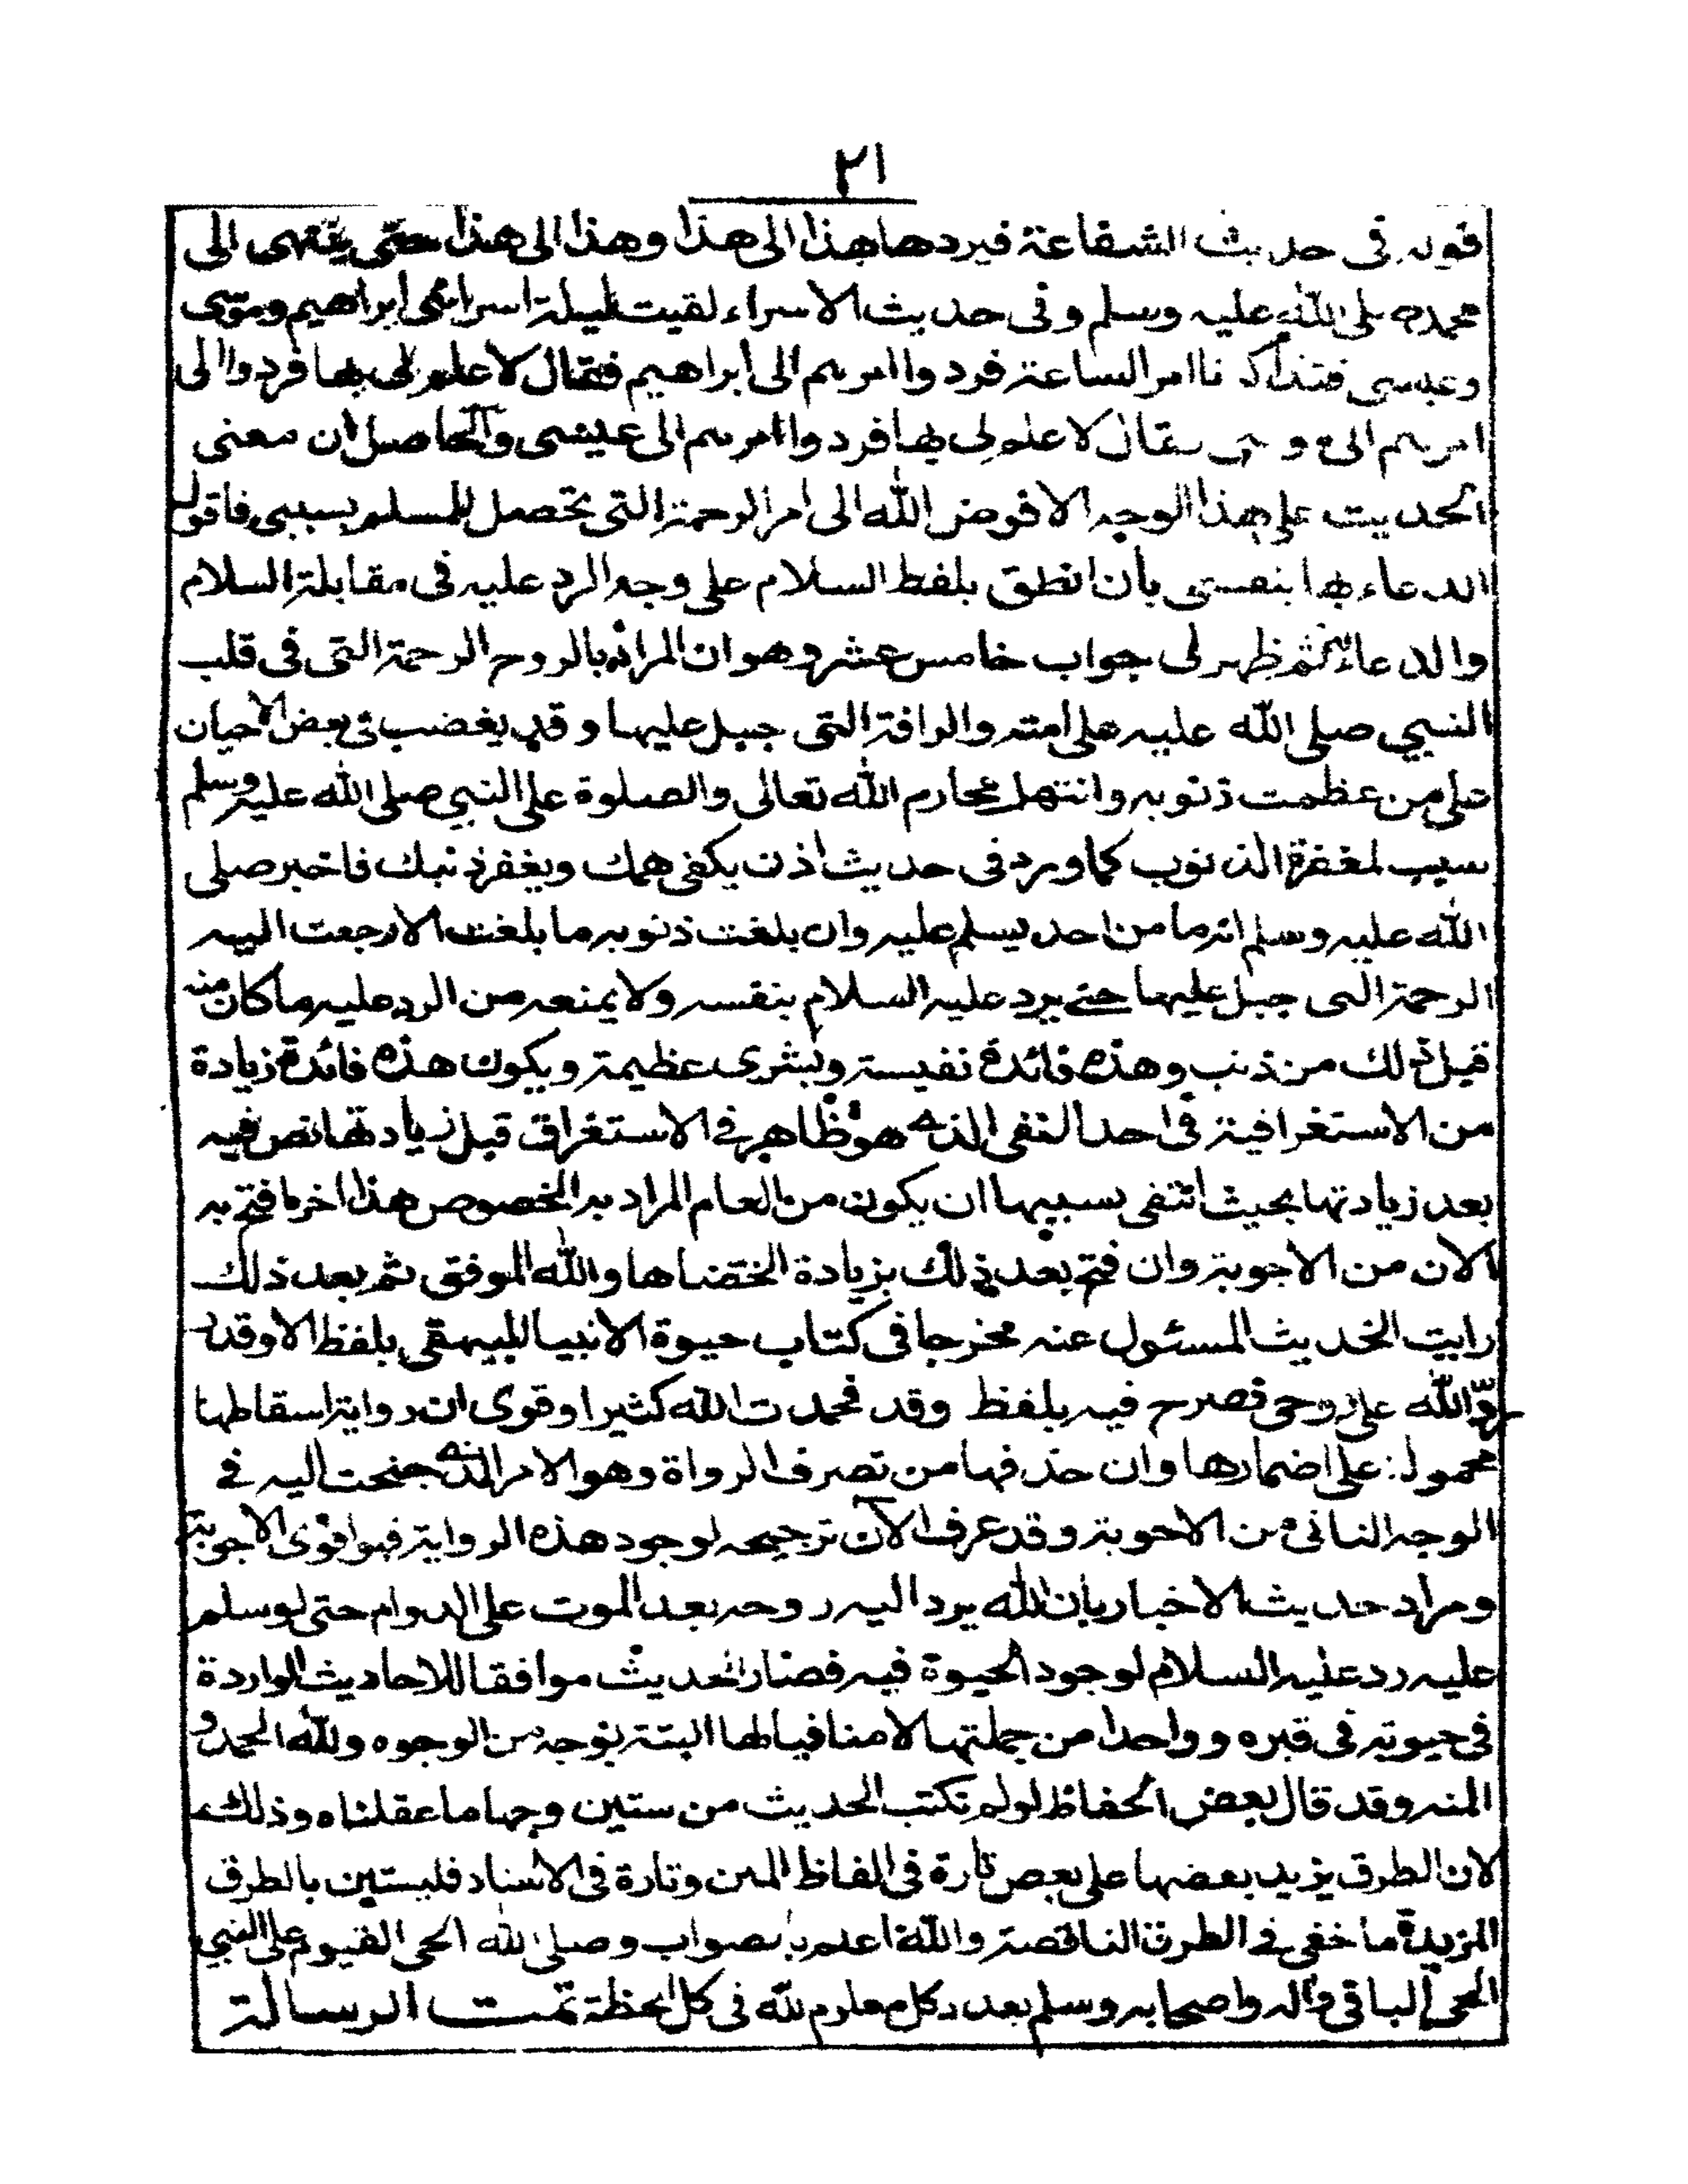 ٢١
قوله فى حديث الشفاعة فيردها هذا الى هذا وهذا الى هذا حتى ينتهى الى
محمد صلى الله عليه وسلم وفى حديث الاسراء لقيت ليلة اسرى بى ابراهيم وموسى
وعيسى فتذاكرنا امر الساعة فردوا امرهم الى ابراهيم فقال لا علم لى بها فردوا الى
امرهم الى موسى فقال لا علم لى بها فردوا امرهم الى عيسى والحاصل ان معنى
الحديث على هذا الوجه الا فوض الله الى امر الرحمة التى تحصل للمسلم بسببى فاقول
الدعاء بها بنفسى بأن انطق بلفظ السلام على وجه الرد عليه فى مقابلة السلام
والدعاء ثم ظهر لى جواب خامس عشر وهو ان المراد بالروح الرحمة التى فى قلب
النبي صلى الله عليه على امته والرافة التى جبل عليها وقد يغضب فى بعض الاحيان
على من عظمت ذنوبه وانتهك محارم الله تعالى والصلوة على النبي صلى الله عليه وسلم
سبب لمغفرة الذنوب كما ورد فى حديث اذن يكفى همك ويغفر ذنبك فاخبر صلى
الله عليه وسلم انه ما من احد يسلم عليه وان بلغت ذنوبه ما بلغت الا رجعت اليه
الرحمة التى جبل عليها حتے يرد عليه السلام بنفسه ولا يمنعه من الرد عليه ما كان منه
قبل ذلك من ذنب وهذه فائدة نفيسة وبشرى عظيمة ويكون هذه فائدة زيادة
من الاستغراقية فى احد النفى الذے هو ظاهر فے الاستغراق قبل زيادتها نص فيه
بعد زيادتها بحيث انتفى بسببها ان يكون من العام المراد به الخصوص هذا اخر ما فتح به
الان من الاجوبة وان فتح بعد ذلك بزيادة الحقناها والله الموفق ثم بعد ذلك
رايت الحديث المسئول عنه مخرجا فى كتاب حيوة الانبيا للبيهقى بلفظ الا وقد
ردّ الله على روحى فصرح فيه بلفظ وقد فحمدت الله كثيرا وقوى ان رواية اسقاطها
محمولة على اضمارها وان حذفها من تصرف الرواة وهو الامر الذے جنحت اليه فے
الوجه الثانى من الاجوبة وقد عرف الآن ترجيحه لوجود هذه الرواية فهو اقوى الاجوبة
ومراد حديث الاخبار بأن الله يرد اليه روحه بعد الموت على الدوام حتى لو سلم
عليه رد عليه السلام لوجود الحيوة فيه فصار الحديث موافقا للاحاديث الواردة
فى حيوته فى قبره وواحدا من جملتها لا منافيا لها البتة بوجه من الوجوه ولله الحمد و
المنه وقد قال بعض الحفاظ لو لم نكتب الحديث من ستين وجها ما عقلناه وذلك
لان الطرق يزيد بعضها على بعض تارة فى الفاظ المتن وتارة فى الاسناد فليستين بالطرق
المزيدة ما خفى فے الطرق الناقصة والله اعلم بالصواب وصلى الله الحى القيوم على النبي
الحى الباقى وآله واصحابه وسلم بعدد كل معلوم لله فى كل لحظة تمت الرسالة